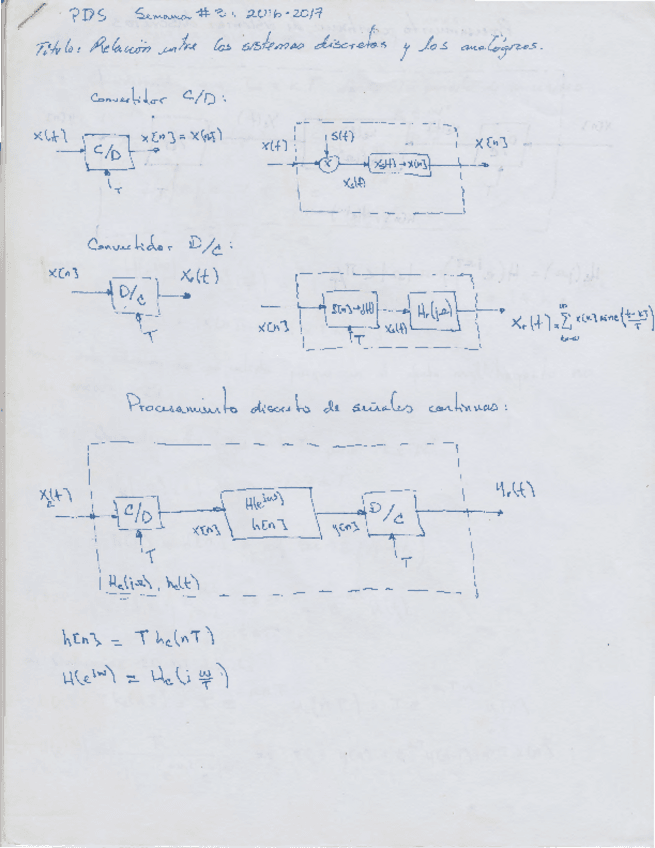 PDS Semana #3: 2016-2017
Título: Relación entre los sistemas discretos y los analógicos.
Convertidor C/D:
x(t) C/D x[n] = x(nT)
T
x(t) s(t) x xs(t) xs(t)→x[n] x[n]
Convertidor D/C:
x[n] D/C xr(t)
T
x[n] s[n]→s(t) T xs(t) Hr(jω) xr(t) = Σ x[k] sinc(
Procesamiento discreto de señales continuas:
xc(t) C/D x[n] H(e^jω) h[n] y[n] D/C yr(t)
T T
Hc(jω), hc(t)
h[n] = T hc(nT)
H(e^jω) = Hc(j ω/T)